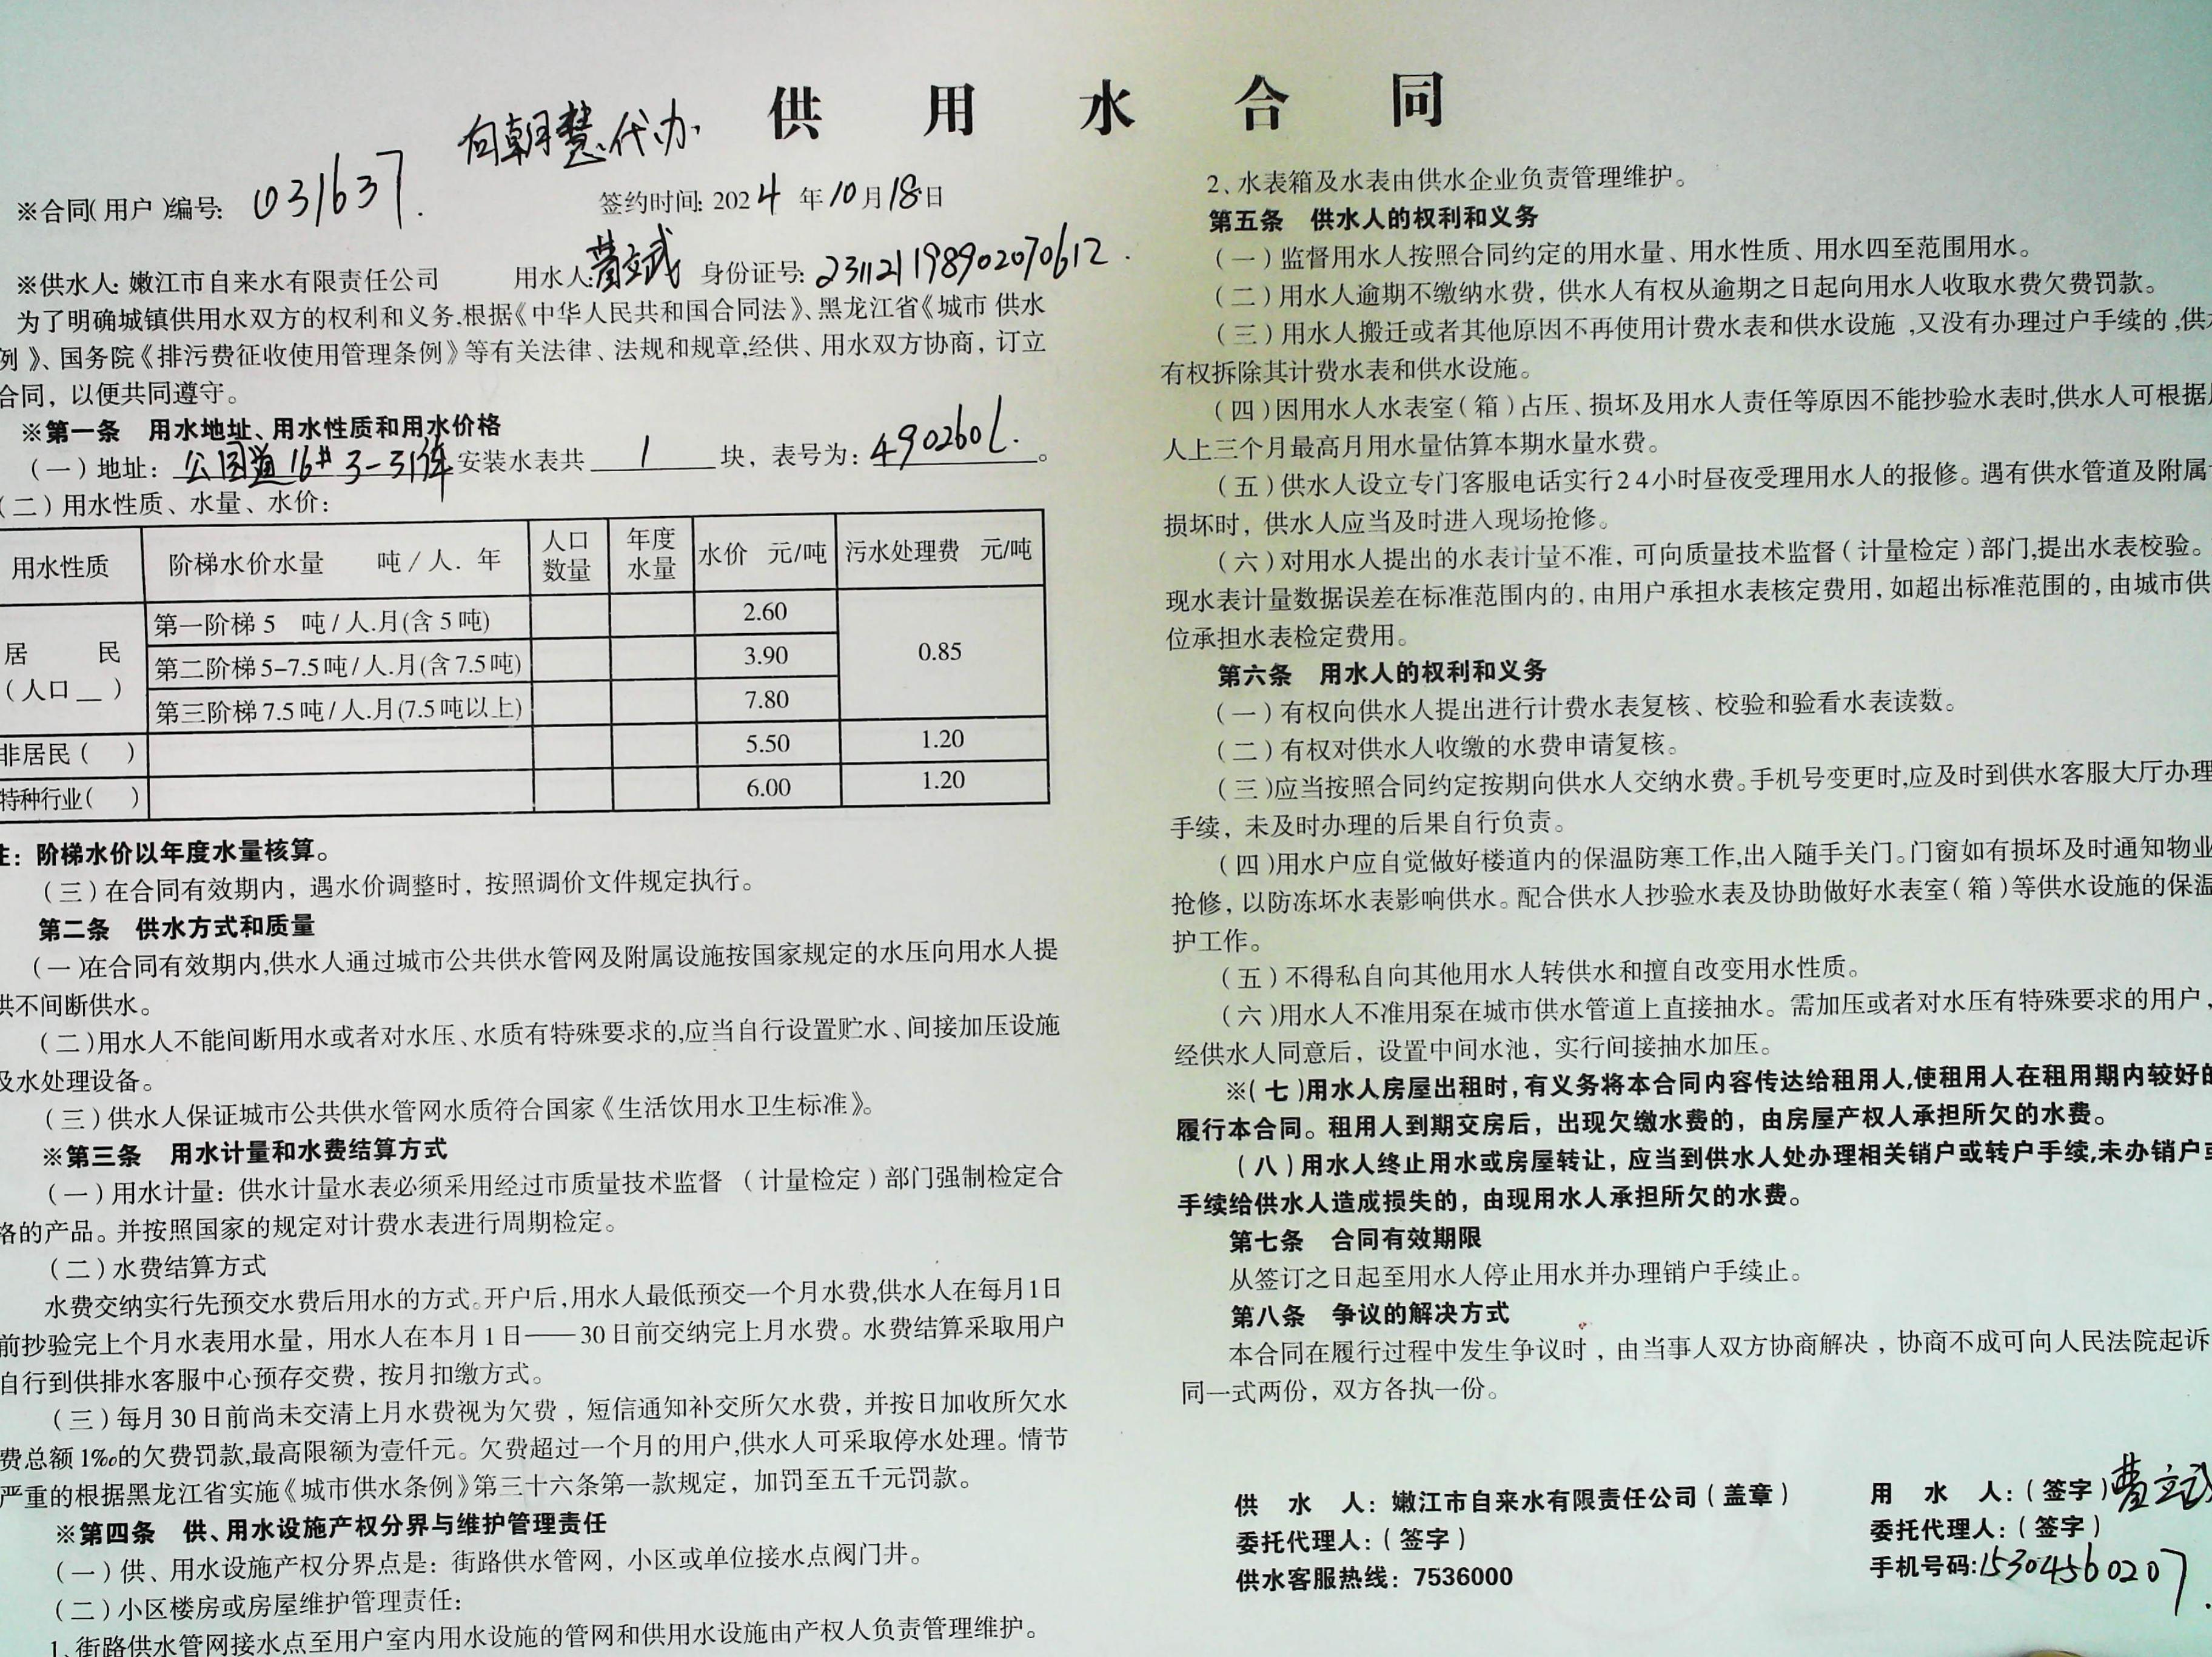 供用水合同
向朝慧代办
※合同(用户)编号: 031637.
签约时间: 2024年10月18日
※供水人: 嫩江市自来水有限责任公司 用水人: 曹立武 身份证号: 231121198902070612.
为了明确城镇供用水双方的权利和义务,根据《中华人民共和国合同法》、黑龙江省《城市供水
例》、国务院《排污费征收使用管理条例》等有关法律、法规和规章,经供、用水双方协商，订立
合同，以便共同遵守。
※第一条 用水地址、用水性质和用水价格
(一)地址: 公园道16# 3-31 安装水表共 1 块，表号为: 490260
(二)用水性质、水量、水价:
用水性质 阶梯水价水量 吨/人.年 人口数量 年度水量 水价 元/吨 污水处理费 元/吨
居民(人口__) 第一阶梯5 吨/人.月(含5吨) 2.60 0.85
第二阶梯5-7.5吨/人.月(含7.5吨) 3.90
第三阶梯7.5吨/人.月(7.5吨以上) 7.80
非居民( ) 5.50 1.20
特种行业( ) 6.00 1.20
注：阶梯水价以年度水量核算。
(三)在合同有效期内，遇水价调整时，按照调价文件规定执行。
第二条 供水方式和质量
(一)在合同有效期内,供水人通过城市公共供水管网及附属设施按国家规定的水压向用水人提
供不间断供水。
(二)用水人不能间断用水或者对水压、水质有特殊要求的,应当自行设置贮水、间接加压设施
及水处理设备。
(三)供水人保证城市公共供水管网水质符合国家《生活饮用水卫生标准》。
※第三条 用水计量和水费结算方式
(一)用水计量：供水计量水表必须采用经过市质量技术监督 (计量检定)部门强制检定合
格的产品。并按照国家的规定对计费水表进行周期检定。
(二)水费结算方式
水费交纳实行先预交水费后用水的方式。开户后,用水人最低预交一个月水费,供水人在每月1日
前抄验完上个月水表用水量，用水人在本月1日——30日前交纳完上月水费。水费结算采取用户
自行到供排水客服中心预存交费，按月扣缴方式。
(三)每月30日前尚未交清上月水费视为欠费，短信通知补交所欠水费，并按日加收所欠水
费总额1‰的欠费罚款,最高限额为壹仟元。欠费超过一个月的用户,供水人可采取停水处理。情节
严重的根据黑龙江省实施《城市供水条例》第三十六条第一款规定，加罚至五千元罚款。
※第四条 供、用水设施产权分界与维护管理责任
(一)供、用水设施产权分界点是：街路供水管网，小区或单位接水点阀门井。
(二)小区楼房或房屋维护管理责任:
1、街路供水管网接水点至用户室内用水设施的管网和供用水设施由产权人负责管理维护。
2、水表箱及水表由供水企业负责管理维护。
第五条 供水人的权利和义务
(一)监督用水人按照合同约定的用水量、用水性质、用水四至范围用水。
(二)用水人逾期不缴纳水费，供水人有权从逾期之日起向用水人收取水费欠费罚款。
(三)用水人搬迁或者其他原因不再使用计费水表和供水设施,又没有办理过户手续的,供水
有权拆除其计费水表和供水设施。
(四)因用水人水表室(箱)占压、损坏及用水人责任等原因不能抄验水表时,供水人可根据
人上三个月最高月用水量估算本期水量水费。
(五)供水人设立专门客服电话实行24小时昼夜受理用水人的报修。遇有供水管道及附属
损坏时，供水人应当及时进入现场抢修。
(六)对用水人提出的水表计量不准，可向质量技术监督(计量检定)部门,提出水表校验。
现水表计量数据误差在标准范围内的，由用户承担水表核定费用，如超出标准范围的，由城市供
位承担水表检定费用。
第六条 用水人的权利和义务
(一)有权向供水人提出进行计费水表复核、校验和验看水表读数。
(二)有权对供水人收缴的水费申请复核。
(三)应当按照合同约定按期向供水人交纳水费。手机号变更时,应及时到供水客服大厅办理
手续，未及时办理的后果自行负责。
(四)用水户应自觉做好楼道内的保温防寒工作,出入随手关门。门窗如有损坏及时通知物业
抢修，以防冻坏水表影响供水。配合供水人抄验水表及协助做好水表室(箱)等供水设施的保温
护工作。
(五)不得私自向其他用水人转供水和擅自改变用水性质。
(六)用水人不准用泵在城市供水管道上直接抽水。需加压或者对水压有特殊要求的用户，
经供水人同意后，设置中间水池，实行间接抽水加压。
※(七)用水人房屋出租时,有义务将本合同内容传达给租用人,使租用人在租用期内较好的
履行本合同。租用人到期交房后，出现欠缴水费的，由房屋产权人承担所欠的水费。
(八)用水人终止用水或房屋转让，应当到供水人处办理相关销户或转户手续,未办销户或
手续给供水人造成损失的，由现用水人承担所欠的水费。
第七条 合同有效期限
从签订之日起至用水人停止用水并办理销户手续止。
第八条 争议的解决方式
本合同在履行过程中发生争议时，由当事人双方协商解决，协商不成可向人民法院起诉
同一式两份，双方各执一份。
供 水 人：嫩江市自来水有限责任公司(盖章)
委托代理人：(签字)
供水客服热线：7536000
用 水 人：(签字)曹立武
委托代理人：(签字)
手机号码:15304560207.